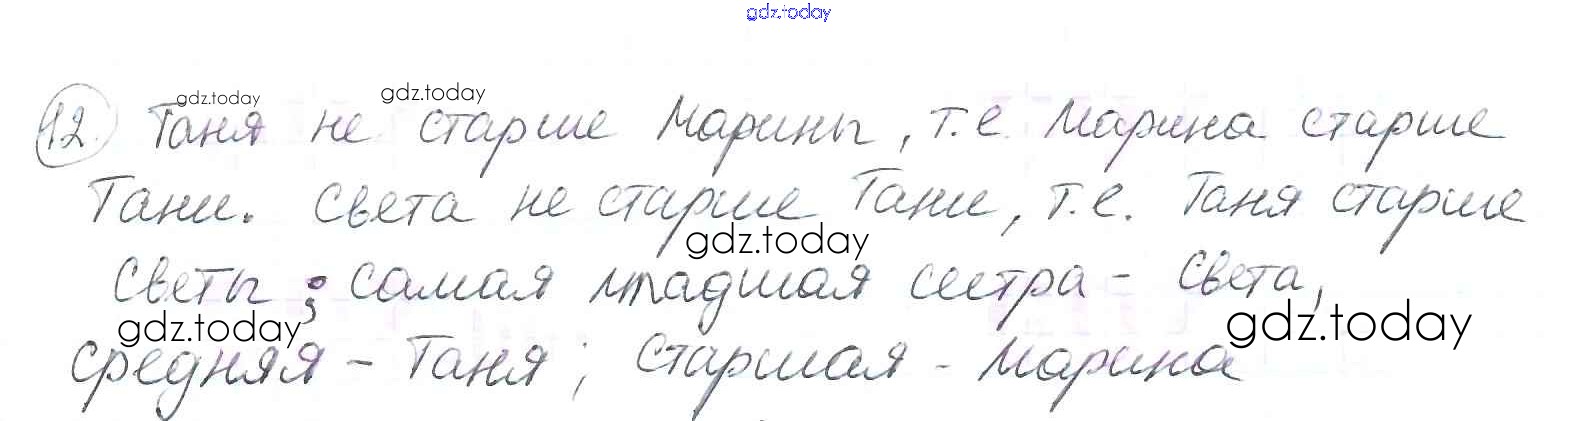 gdz.today
12. Таня не старше Марины, т.е. Марина старше
gdz.today gdz.today
Тани. Света не старше Тани, т.е. Таня старше
gdz.today
Светы; самая младшая сестра - Света,
gdz.today gdz.today
средняя - Таня; старшая - Марина